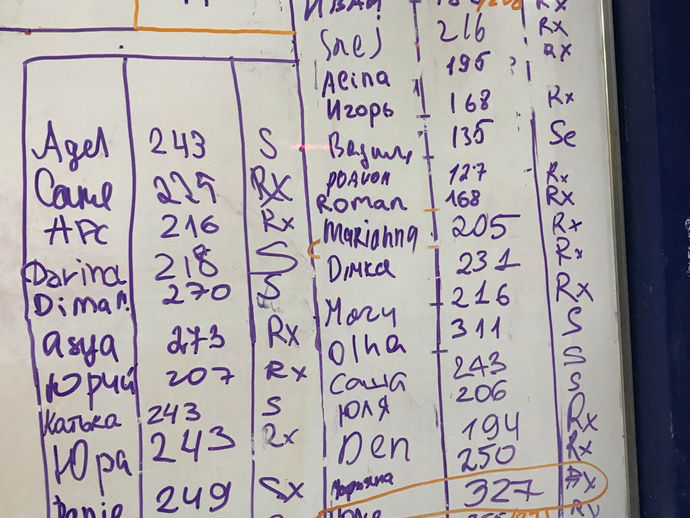 Адел 243 S
Саша 225 Rx
APC 216 Rx
Darina 218 S
Dima 270 S
asya 273 Rx
Юрий 207 Rx
Катька 243 S
Юра 243 Rx
249 Sx
Иван Rx
Snej 216 Rx
Alina 195
Игорь 168 Rx
Вадим 135 Se
127 Rx
Roman 168 Rx
Marianna 205 Rx
Димка 231 Rx
216 Rx
Olha 311 S
Саша 243 S
Юля 206 S
Den 194 Rx
250 Rx
327 Rx